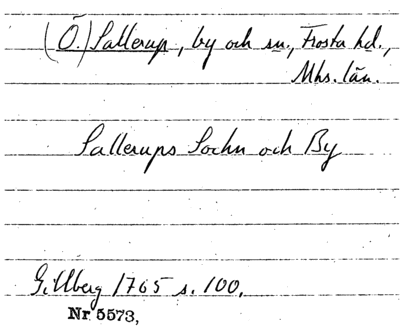 (Ö.) Sallerup, by och sn., Frosta hd.,
Mhs. län.
Sallerups Sochn och By
Gillberg 1765 s. 100.
Nr 5573,